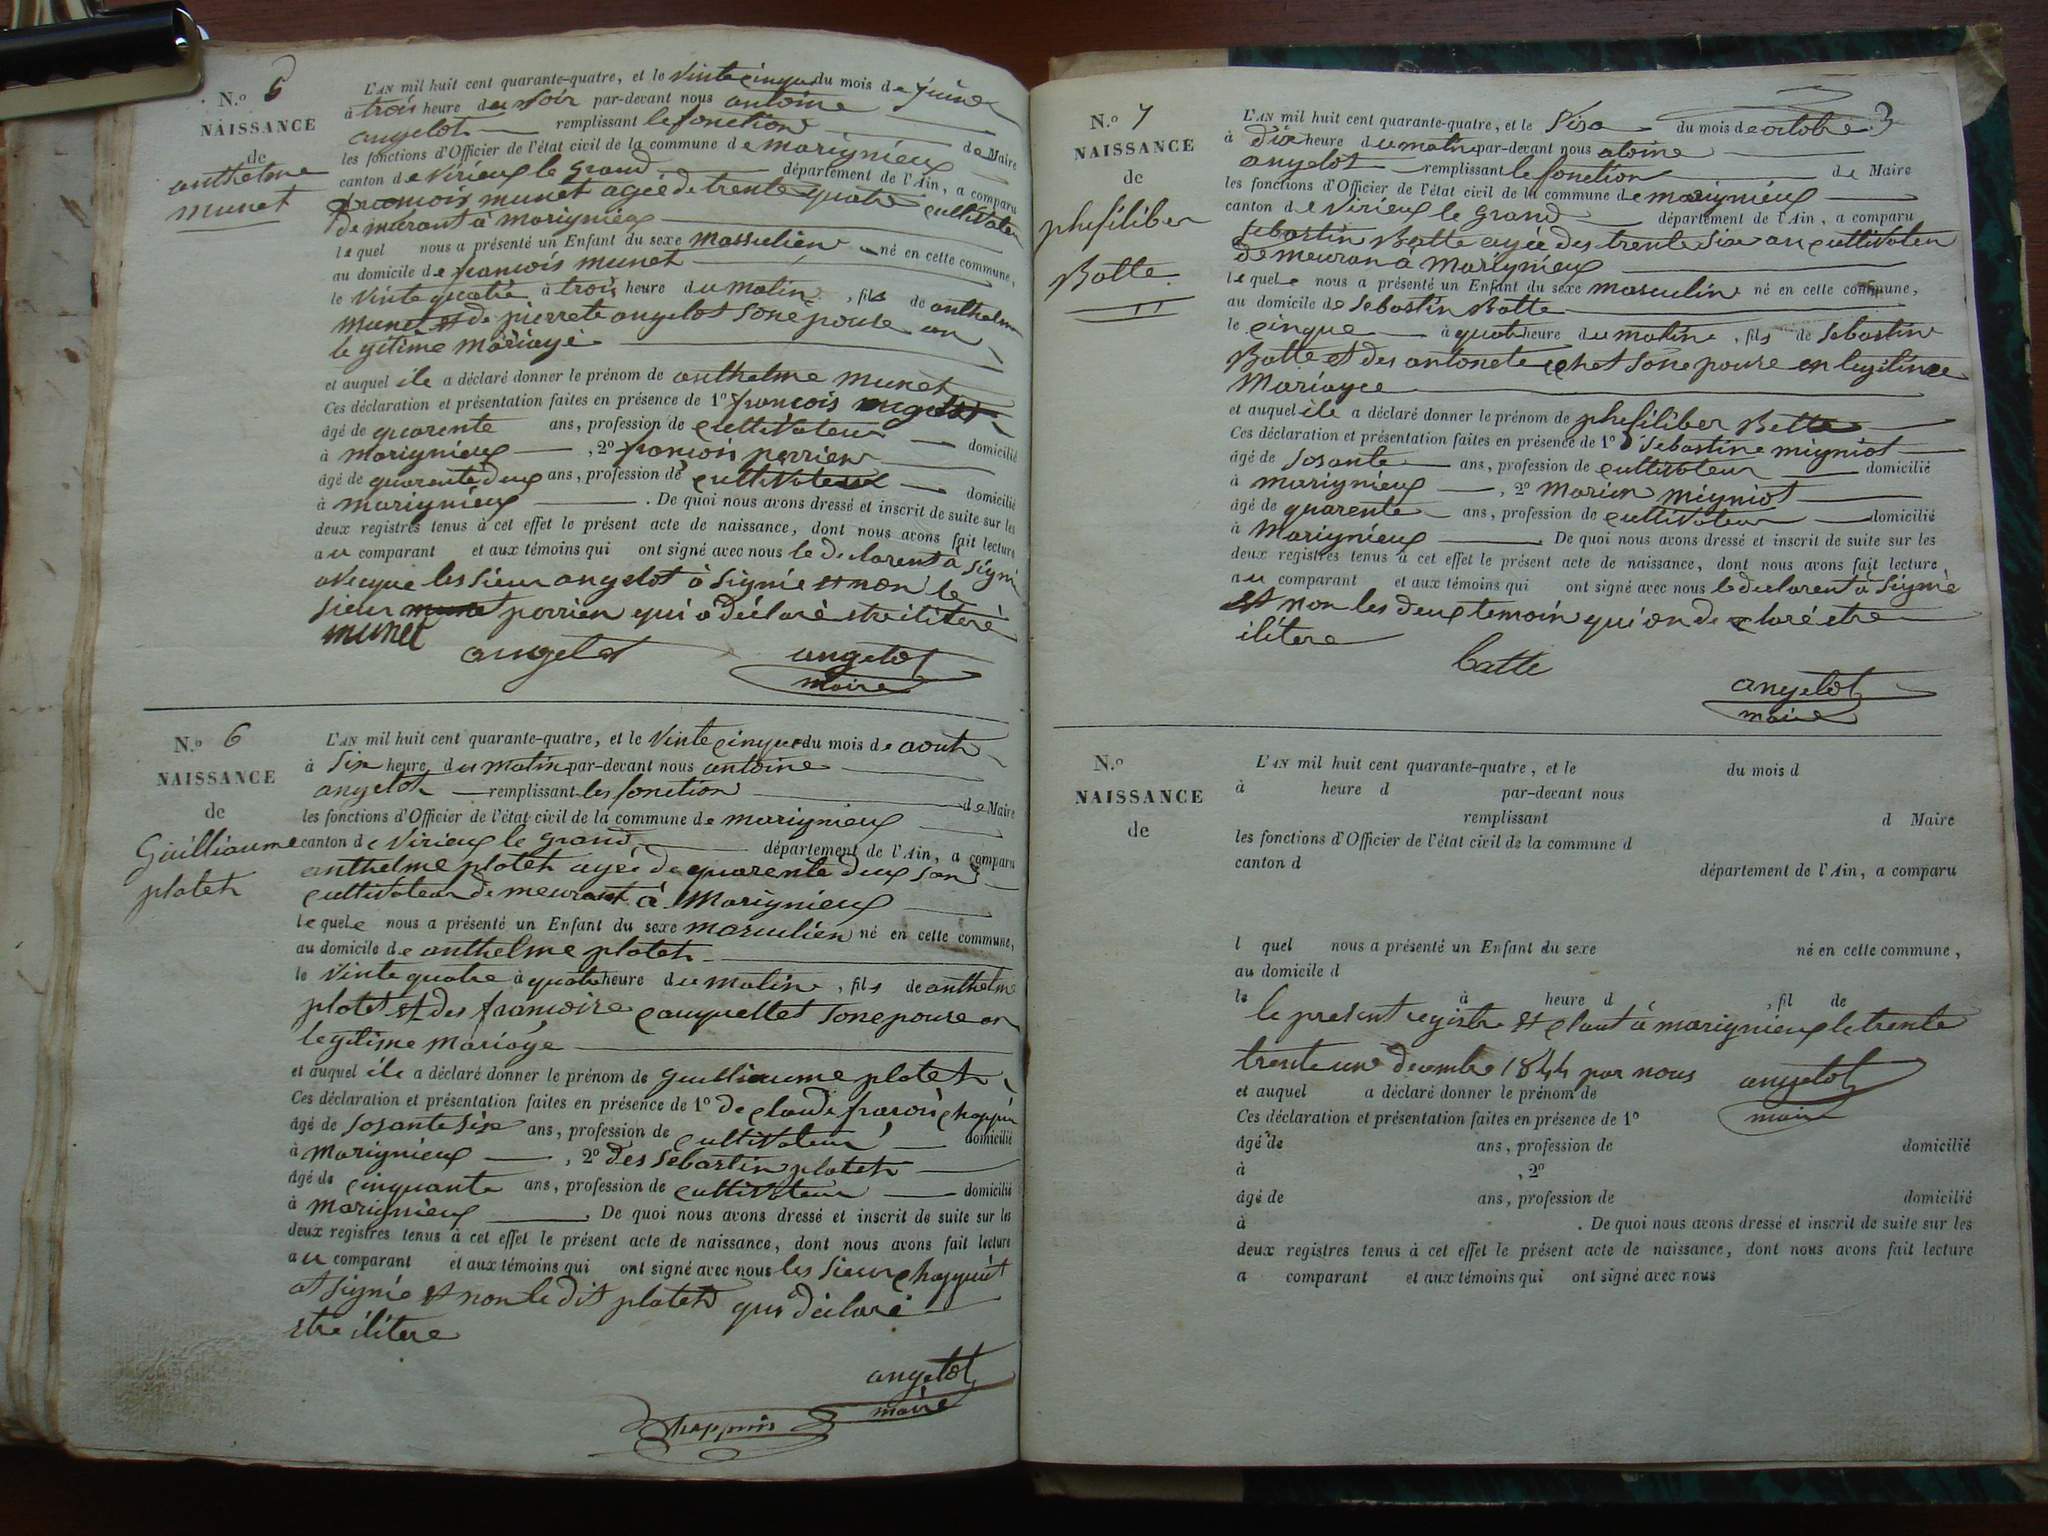 N.º 6
NAISSANCE
de
anthelme
munet
L'AN mil huit cent quarante-quatre, et le vinte cinque du mois de juine
à trois heure du soir par-devant nous antoine
angelot remplissant le fonction de Maire
les fonctions d'Officier de l'état civil de la commune de marignieux
canton de virieux le grand département de l'Ain, a comparu
francois munet agée de trente quatre cultivateur
demeurant à marignieux
le quel nous a présenté un Enfant du sexe massculien né en cette commune,
au domicile de francois munet
le vinte quatre à trois heure du matin, fils de anthelme
munet et de pierrete angelot sone pouse en
legitime mariage
et auquel ile a déclaré donner le prénom de anthelme munet
Ces déclaration et présentation faites en présence de 1º francois angelot
âgé de quarente ans, profession de cultivateur domicilié
à marignieux, 2º francois perrien
âgé de quarente deux ans, profession de cultivateur domicilié
à marignieux. De quoi nous avons dressé et inscrit de suite sur les
deux registres tenus à cet effet le présent acte de naissance, dont nous avons fait lecture
au comparant et aux témoins qui ont signé avec nous le declarent à signé
avecque les sieur angelot à signié et non le
sieur munet perrien qui à déclaré etre ilitere
munet angelot angelot
maire
N.º 6
NAISSANCE
de
Guilliaume
platet
L'AN mil huit cent quarante-quatre, et le vinte cinque du mois de aout
à six heure du matin par-devant nous antoine
angelot remplissant les fonction de Maire
les fonctions d'Officier de l'état civil de la commune de marignieux
canton de virieux le grand département de l'Ain, a comparu
anthelme platet agée de quarente deux san
cultivateur demeurant à Marignieux
le quele nous a présenté un Enfant du sexe masculien né en cette commune,
au domicile de anthelme platet
le vinte quatre à quatre heure du matin, fils de anthelme
platet et des francoise cauquellet sone pouse en
legitime mariage
et auquel ile a déclaré donner le prénom de guilliaume platet
Ces déclaration et présentation faites en présence de 1º de claude
âgé de sosante six ans, profession de cultivateur domicilié
à marignieux, 2º des sebastin platet
âgé de cinquante ans, profession de cultivateur domicilié
à marignieux. De quoi nous avons dressé et inscrit de suite sur les
deux registres tenus à cet effet le présent acte de naissance, dont nous avons fait lecture
au comparant et aux témoins qui ont signé avec nous les sieur
at signé et non le dit platet qui déclaré
etre ilitere
angelot
maire
Chappuis
3
N.º 7
NAISSANCE
de
phefiliber
Batte
L'AN mil huit cent quarante-quatre, et le sixe du mois de octobre
à dix heure du matin par-devant nous atoine
angelot remplissant le fonction de Maire
les fonctions d'Officier de l'état civil de la commune de marignieux
canton de virieux le grand département de l'Ain, a comparu
sebastin Batte agée des trente six an cultivateur
demeuran à Marignieux
le quele nous a présenté un Enfant du sexe masculin né en cette commune,
au domicile de sebastin Batte
le cinque à quatre heure du matin, fils de sebastin
Batte et des antonete sone pouse en legitime
Mariage
et auquel ile a déclaré donner le prénom de phefiliber Batte
Ces déclaration et présentation faites en présence de 1º sebastine migniot
âgé de sosante ans, profession de cultivateur domicilié
à marignieux, 2º marien migniot
âgé de quarente ans, profession de cultivateur domicilié
à Marignieux. De quoi nous avons dressé et inscrit de suite sur les
deux registres tenus à cet effet le présent acte de naissance, dont nous avons fait lecture
au comparant et aux témoins qui ont signé avec nous le declarent à signé
et non les deux temoin qui on declaré etre
ilitere
batte
angelot
maire
N.º
NAISSANCE
de
L'AN mil huit cent quarante-quatre, et le du mois d
à heure d par-devant nous
remplissant d Maire
les fonctions d'Officier de l'état civil de la commune d
canton d département de l'Ain, a comparu
l quel nous a présenté un Enfant du sexe né en cette commune,
au domicile d
le à heure d, fil de
le present registre et claut à marignieux le trente
trente une decembre 1844 par nous angelot
maire
et auquel a déclaré donner le prénom de
Ces déclaration et présentation faites en présence de 1º
âgé de ans, profession de domicilié
à, 2º
âgé de ans, profession de domicilié
à. De quoi nous avons dressé et inscrit de suite sur les
deux registres tenus à cet effet le présent acte de naissance, dont nous avons fait lecture
a comparant et aux témoins qui ont signé avec nous